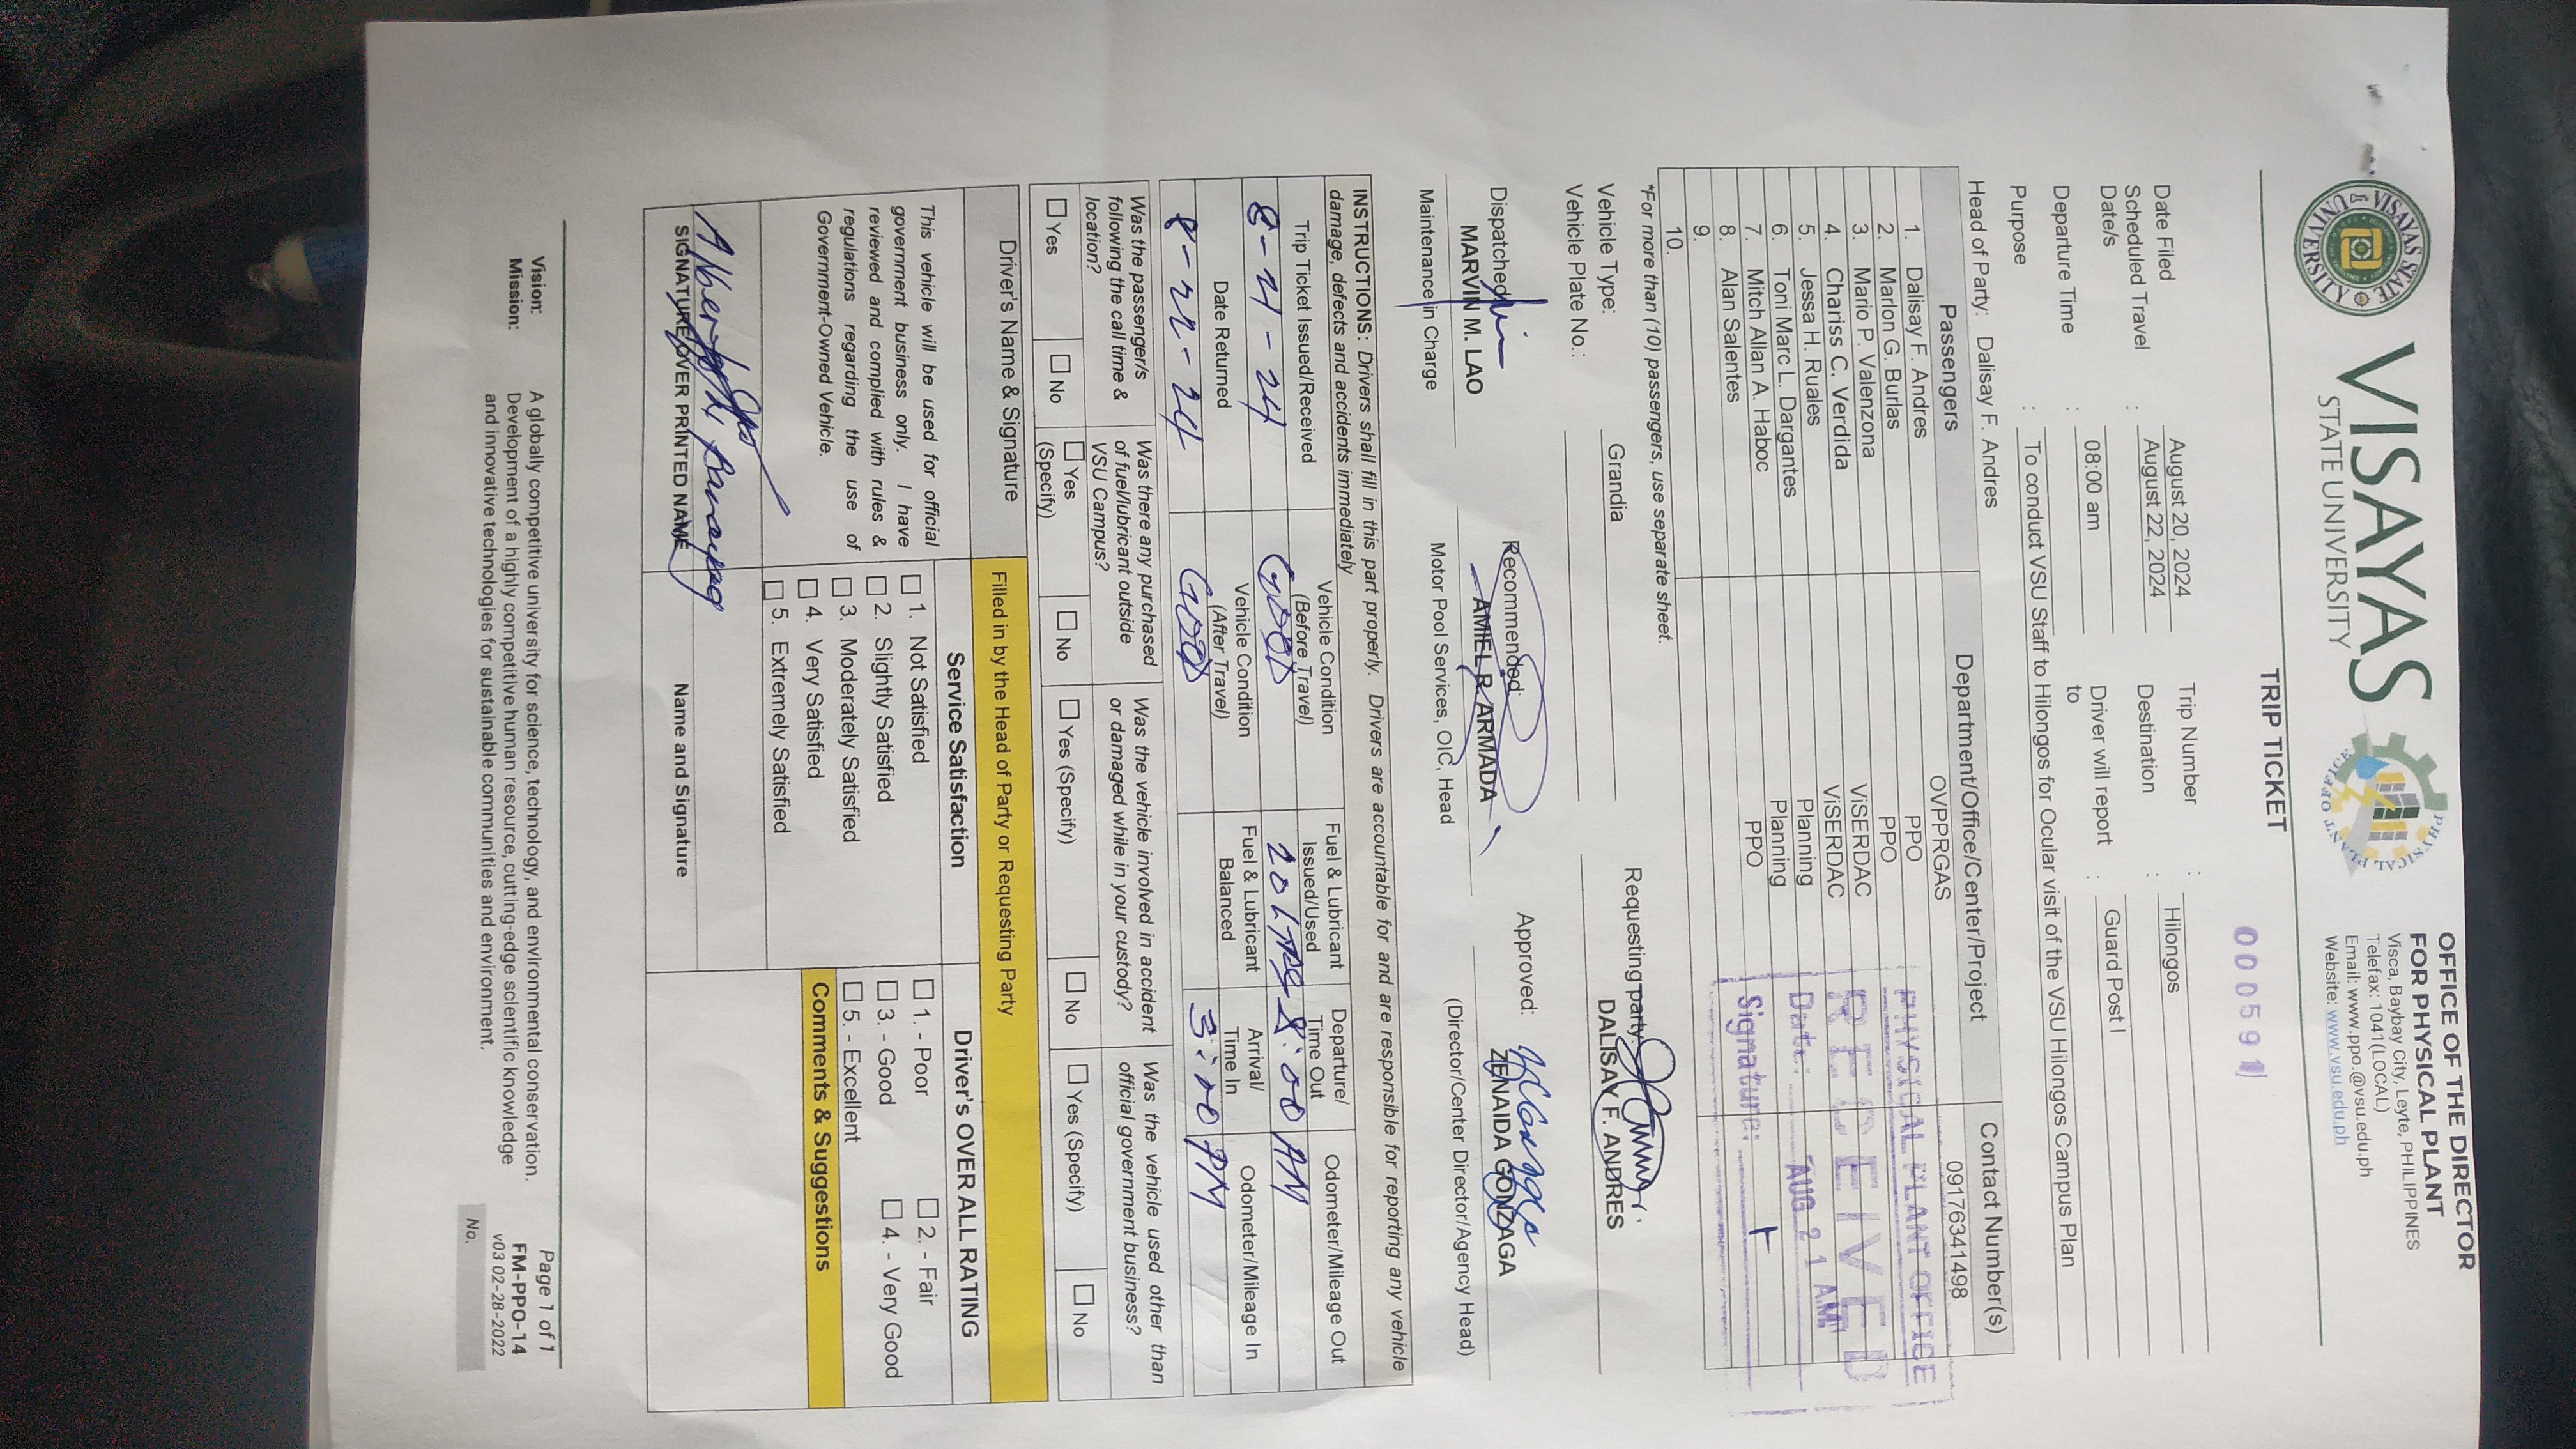 VISAYAS
STATE UNIVERSITY
VISAYAS STATE UNIVERSITY
PHYSICAL PLANT OFFICE
OFFICE OF THE DIRECTOR
FOR PHYSICAL PLANT
Visca, Baybay City, Leyte, PHILIPPINES
Telefax: 1041(LOCAL)
Email: www.ppo.@vsu.edu.ph
Website: www.vsu.edu.ph
000591
TRIP TICKET
Date Filed : August 20, 2024 Trip Number :
Scheduled Travel Date/s : August 22, 2024 Destination : Hilongos
Departure Time : 08:00 am Driver will report to : Guard Post I
Purpose : To conduct VSU Staff to Hilongos for Ocular visit of the VSU Hilongos Campus Plan
Head of Party: Dalisay F. Andres
Passengers Department/Office/Center/Project Contact Number(s)
1. Dalisay F. Andres OVPPRGAS 09176341498
2. Marlon G. Burlas PPO
3. Mario P. Valenzona PPO
4. Chariss C. Verdida ViSERDAC
5. Jessa H. Ruales ViSERDAC
6. Toni Marc L. Dargantes Planning
7. Mitch Allan A. Haboc Planning
8. Alan Salentes PPO
9.
10.
PHYSICAL PLANT OFFICE
RECEIVED
Date: AUG 21 AM
Signature:
*For more than (10) passengers, use separate sheet.
Vehicle Type: Grandia
Vehicle Plate No.:
Requesting party:
DALISAY F. ANDRES
Dispatched
MARVIN M. LAO
Maintenance in Charge
Recommended:
AMIEL R. ARMADA
Motor Pool Services, OIC, Head
Approved:
ZENAIDA GONZAGA
(Director/Center Director/Agency Head)
INSTRUCTIONS: Drivers shall fill in this part properly. Drivers are accountable for and are responsible for reporting any vehicle
damage, defects and accidents immediately
Trip Ticket Issued/Received Vehicle Condition (Before Travel) Fuel & Lubricant Issued/Used Departure/ Time Out Odometer/Mileage Out
8-21-24 GOOD 8:00 AM
Date Returned Vehicle Condition (After Travel) Fuel & Lubricant Balanced Arrival/ Time In Odometer/Mileage In
8-22-24 GOOD 3:00 PM
Was the passenger/s following the call time & location?
Was there any purchased of fuel/lubricant outside VSU Campus?
Was the vehicle involved in accident or damaged while in your custody?
Was the vehicle used other than official government business?
Yes No Yes (Specify) No Yes (Specify) No Yes (Specify) No
Driver's Name & Signature Filled in by the Head of Party or Requesting Party
This vehicle will be used for official
government business only. I have
reviewed and complied with rules &
regulations regarding the use of
Government-Owned Vehicle.
SIGNATURE OVER PRINTED NAME
Service Satisfaction
1. Not Satisfied
2. Slightly Satisfied
3. Moderately Satisfied
4. Very Satisfied
5. Extremely Satisfied
Name and Signature
Driver's OVER ALL RATING
1. - Poor 2. - Fair
3. - Good 4. - Very Good
5. - Excellent
Comments & Suggestions
Vision: A globally competitive university for science, technology, and environmental conservation.
Mission: Development of a highly competitive human resource, cutting-edge scientific knowledge
and innovative technologies for sustainable communities and environment.
Page 1 of 1
FM-PPO-14
v03 02-28-2022
No.